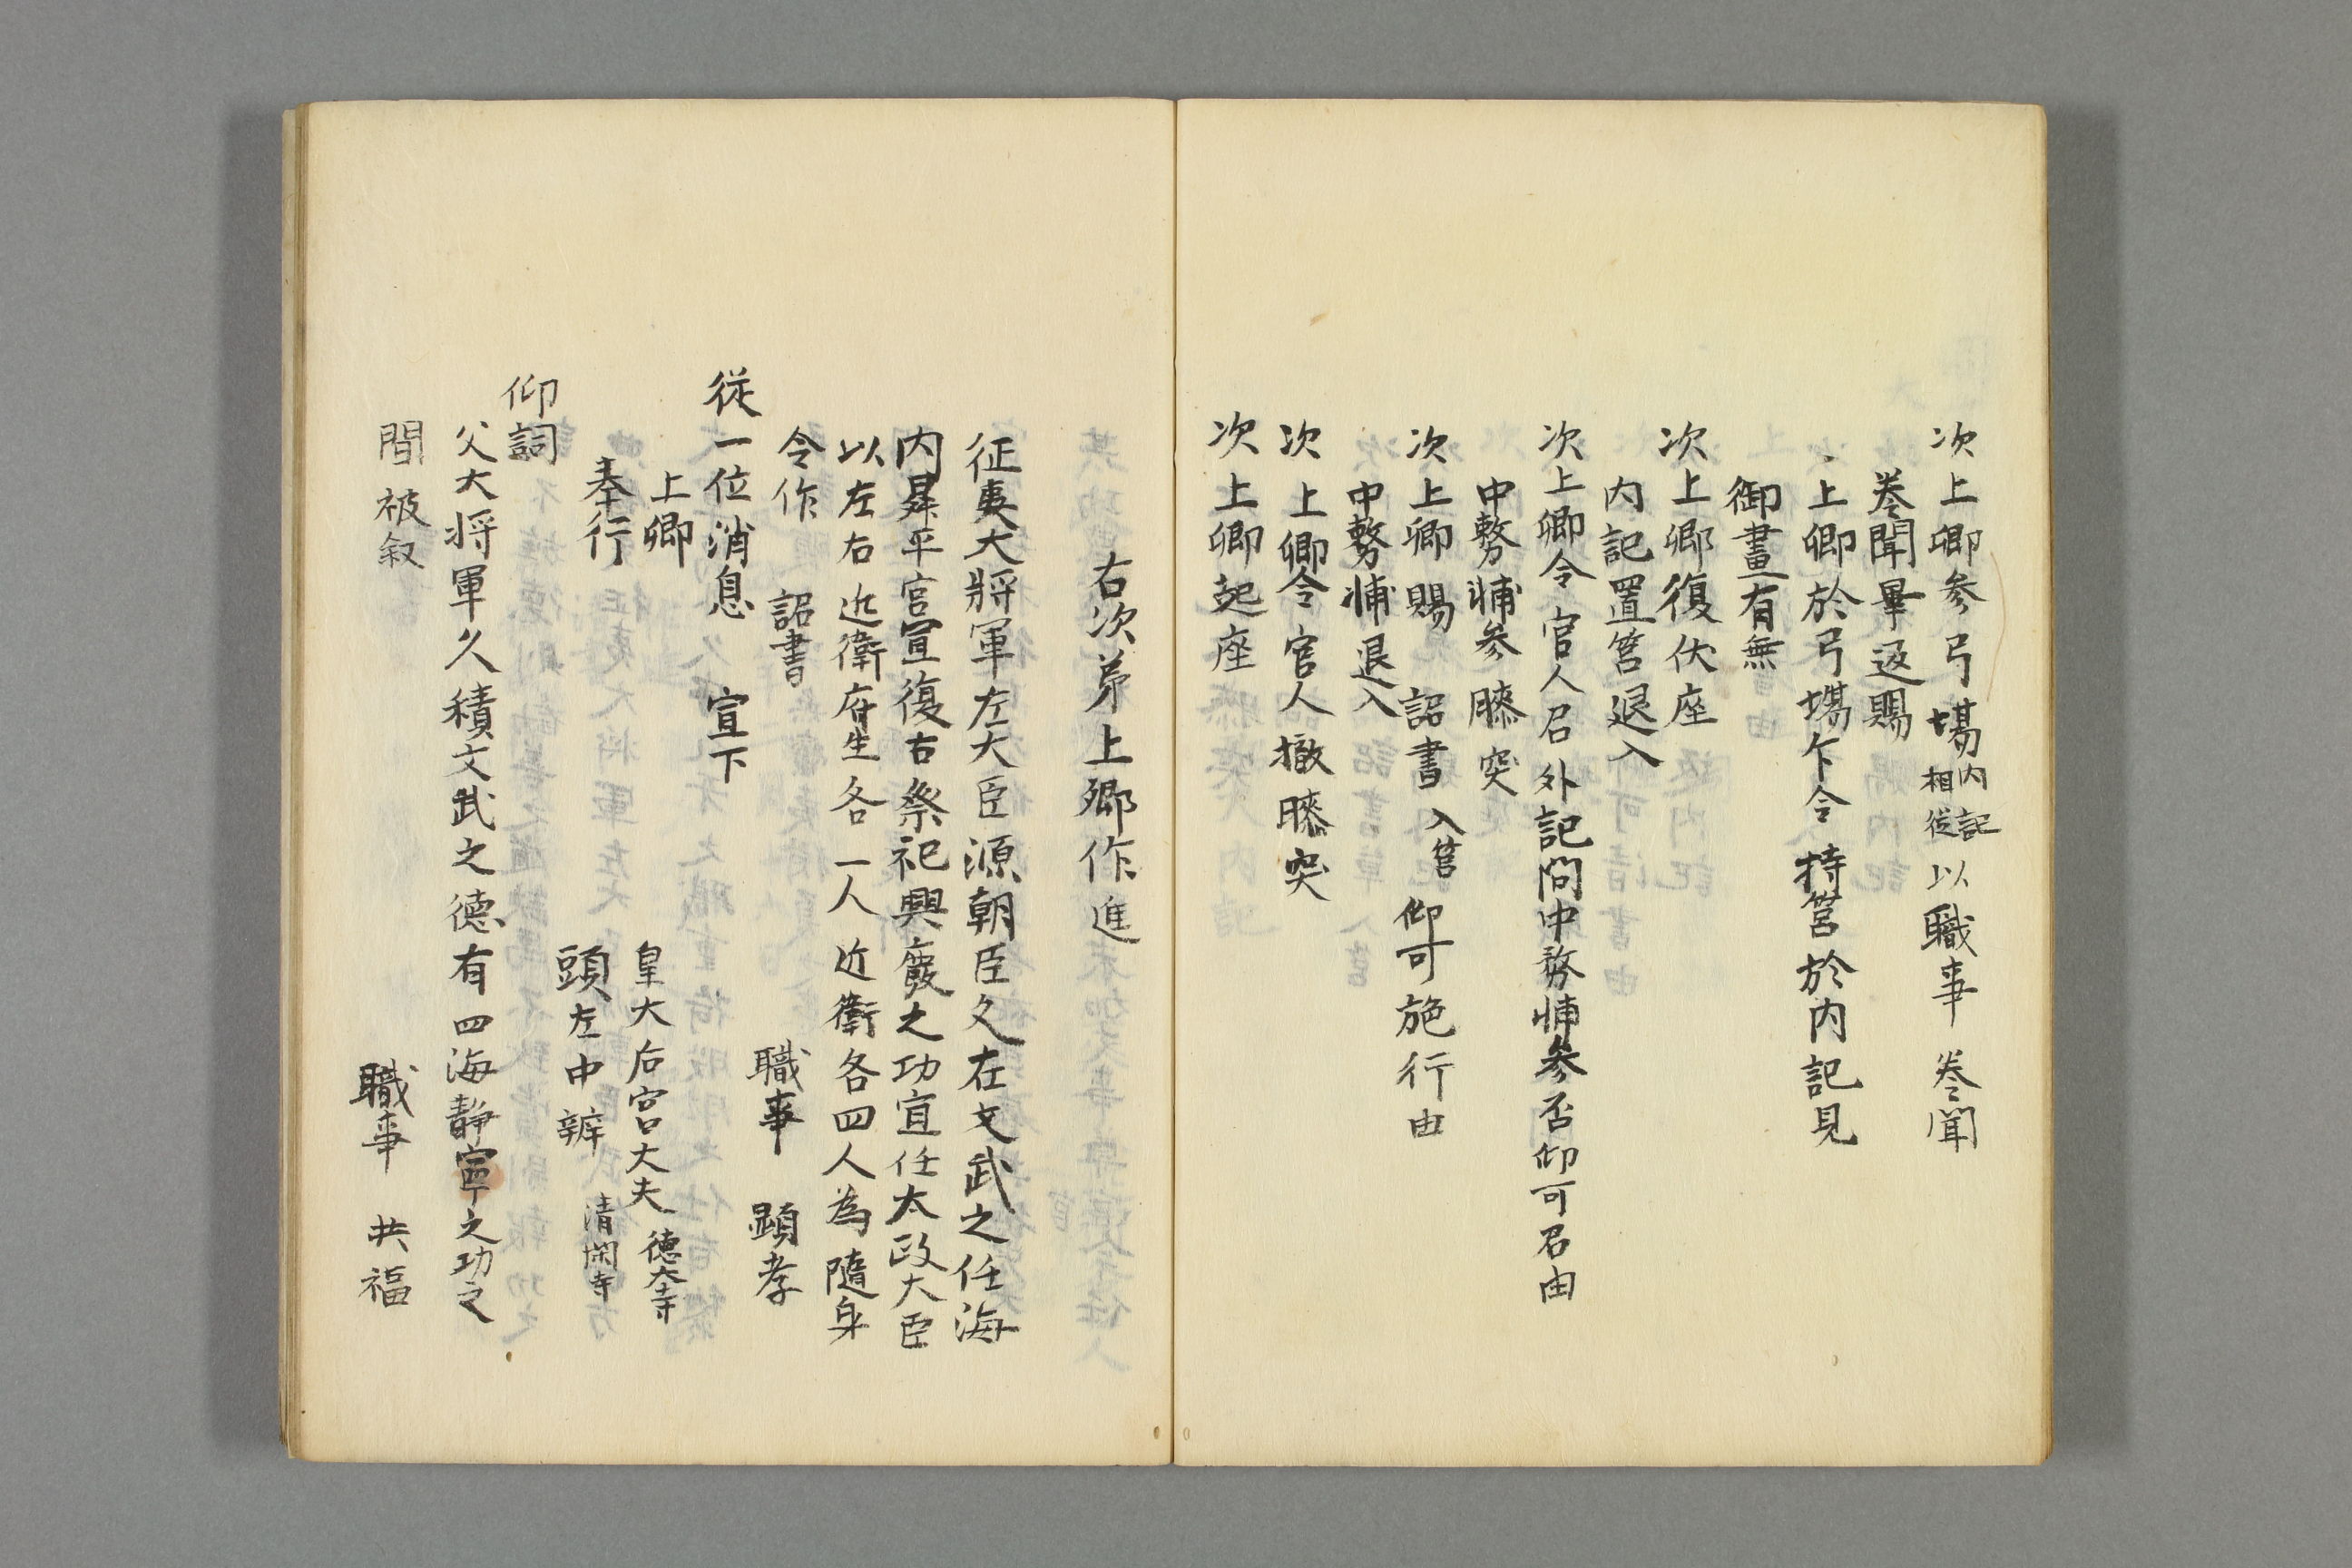 次上卿参弓場内記相従以職事奏聞
奏聞畢返賜
上卿於弓場乍令持筥於内記見
御畫有無
次上卿復伏座
内記置筥退入
次上卿令官人召外記問中務輔参否仰可召由
中務輔参膝突
次上卿賜詔書入筥仰可施行由
中務輔退入
次上卿令官人撤膝突
次上卿起座
右次第上卿作進
征夷大将軍左大臣源朝臣久在文武之任海
内昇平宮宣復古祭祀興廢之功宜任太政大臣
以左右近衛府生各一人近衛各四人為隨身
令作詔書
職事顕孝
従一位消息宣下
上卿皇大后宮大夫徳大寺
奉行頭左中辨清閑寺
仰詞
父大将軍久積文武之徳有四海静寧之功之
間被叙
職事共福